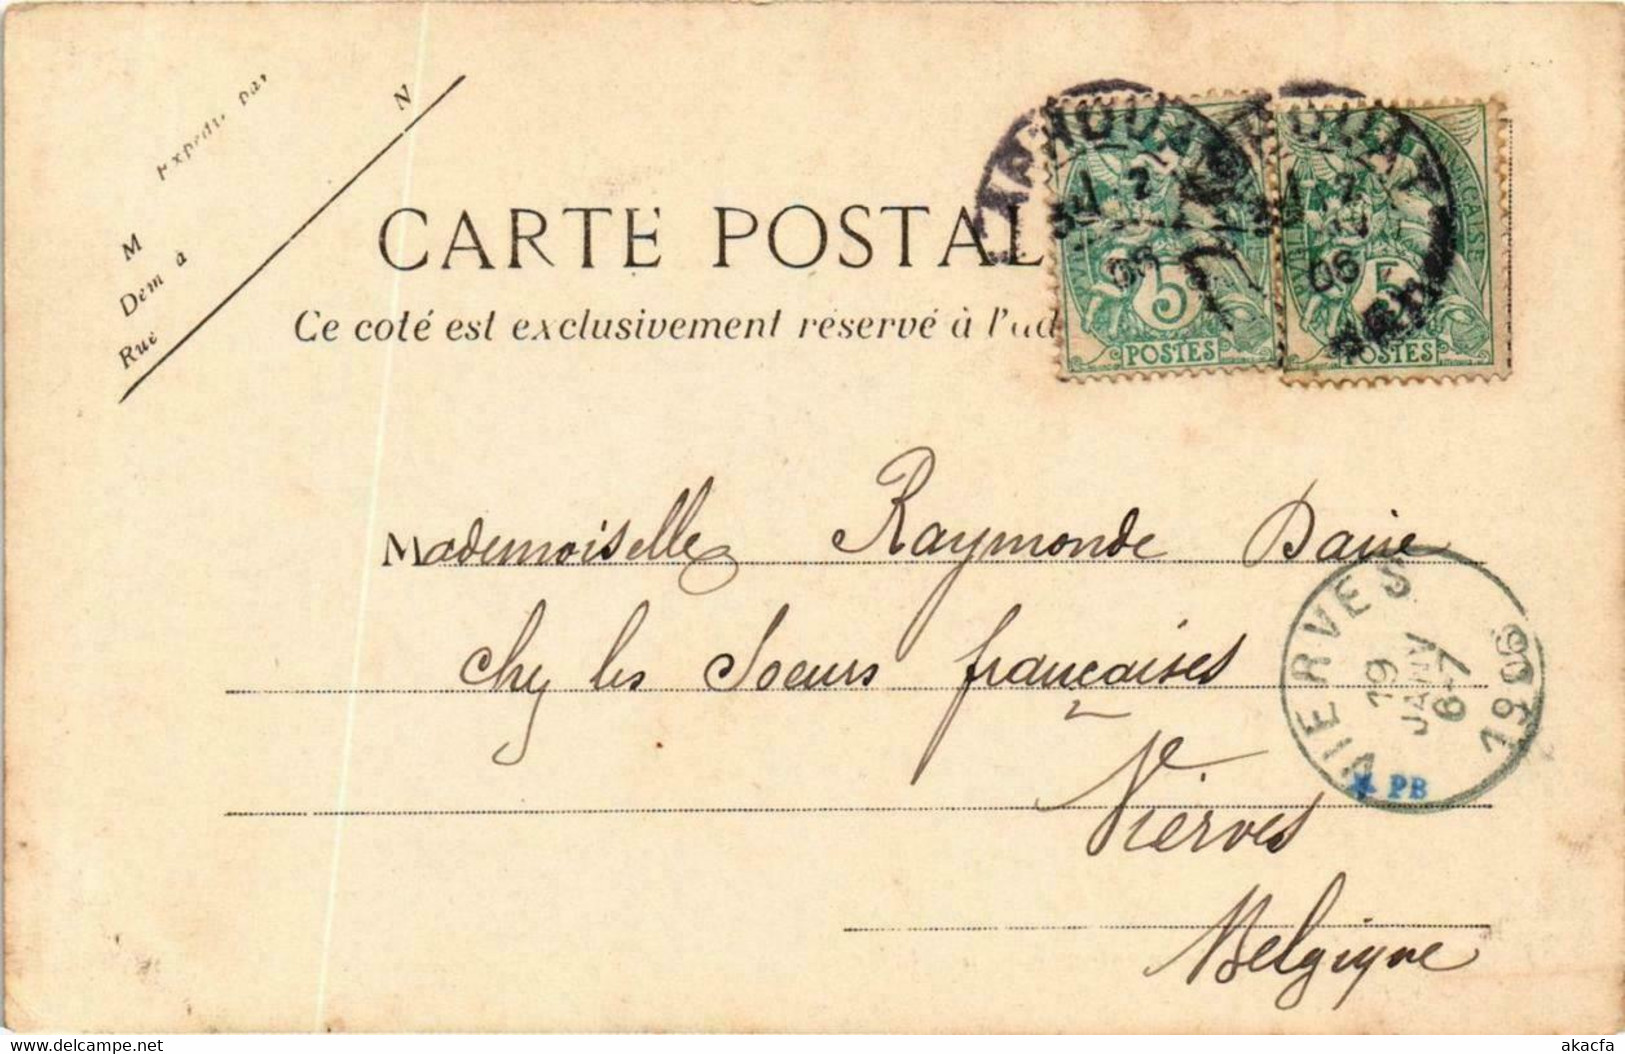 Expédié par
N
M
Dem à
Rue
CARTE POSTAL
Ce coté est exclusivement réservé à l'ad
FRANÇAISE
06
06
5
5
POSTES
POSTES
Mademoiselle Raymonde
chez les Soeurs françaises
Vierves
Belgique
VIERVES
19
JANV
6-7
1906
PB
www.delcampe.net
akacfa